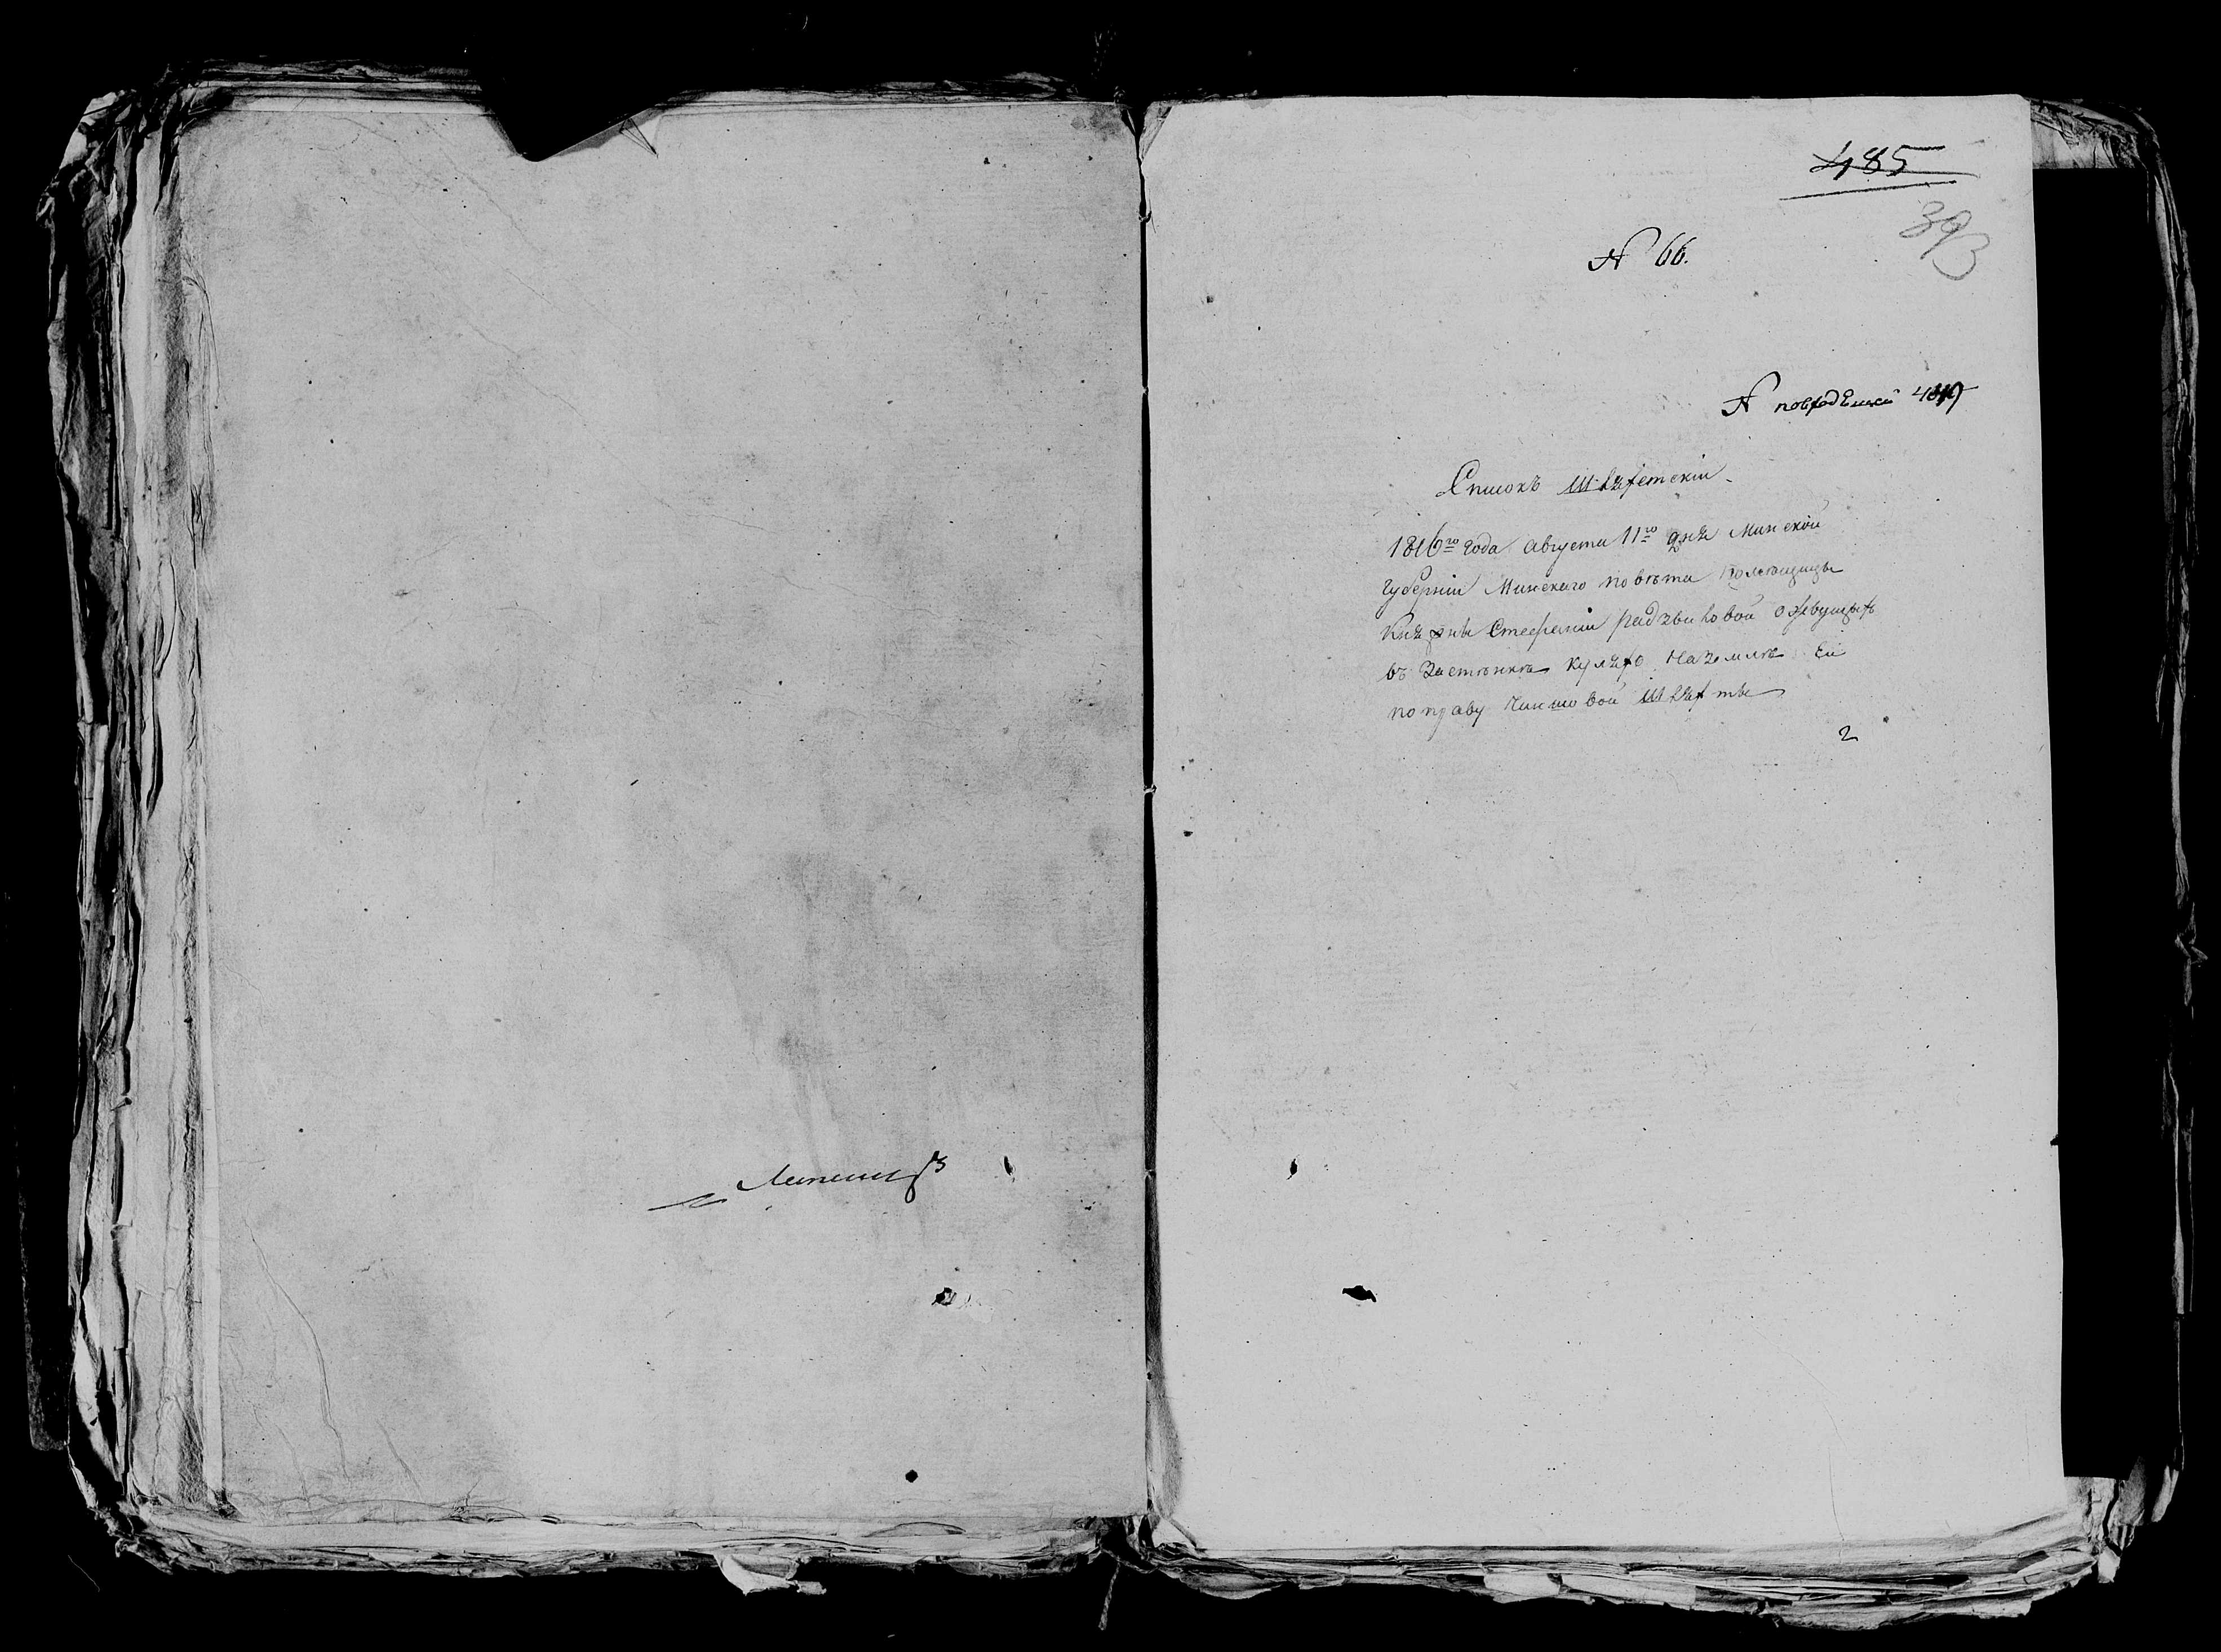 485
393
№ 66.
№ повѣдѣнкой
Списокъ Шляхетскій
1816го года Августа 11го дня Минской
Губерніи Минскаго повѣта Помѣщицы
Княжны Стефаніи Радзвиловой о живущихъ
въ Застѣнкѣ на Землѣ Ей
по праву Чиншовой Шляхты
2